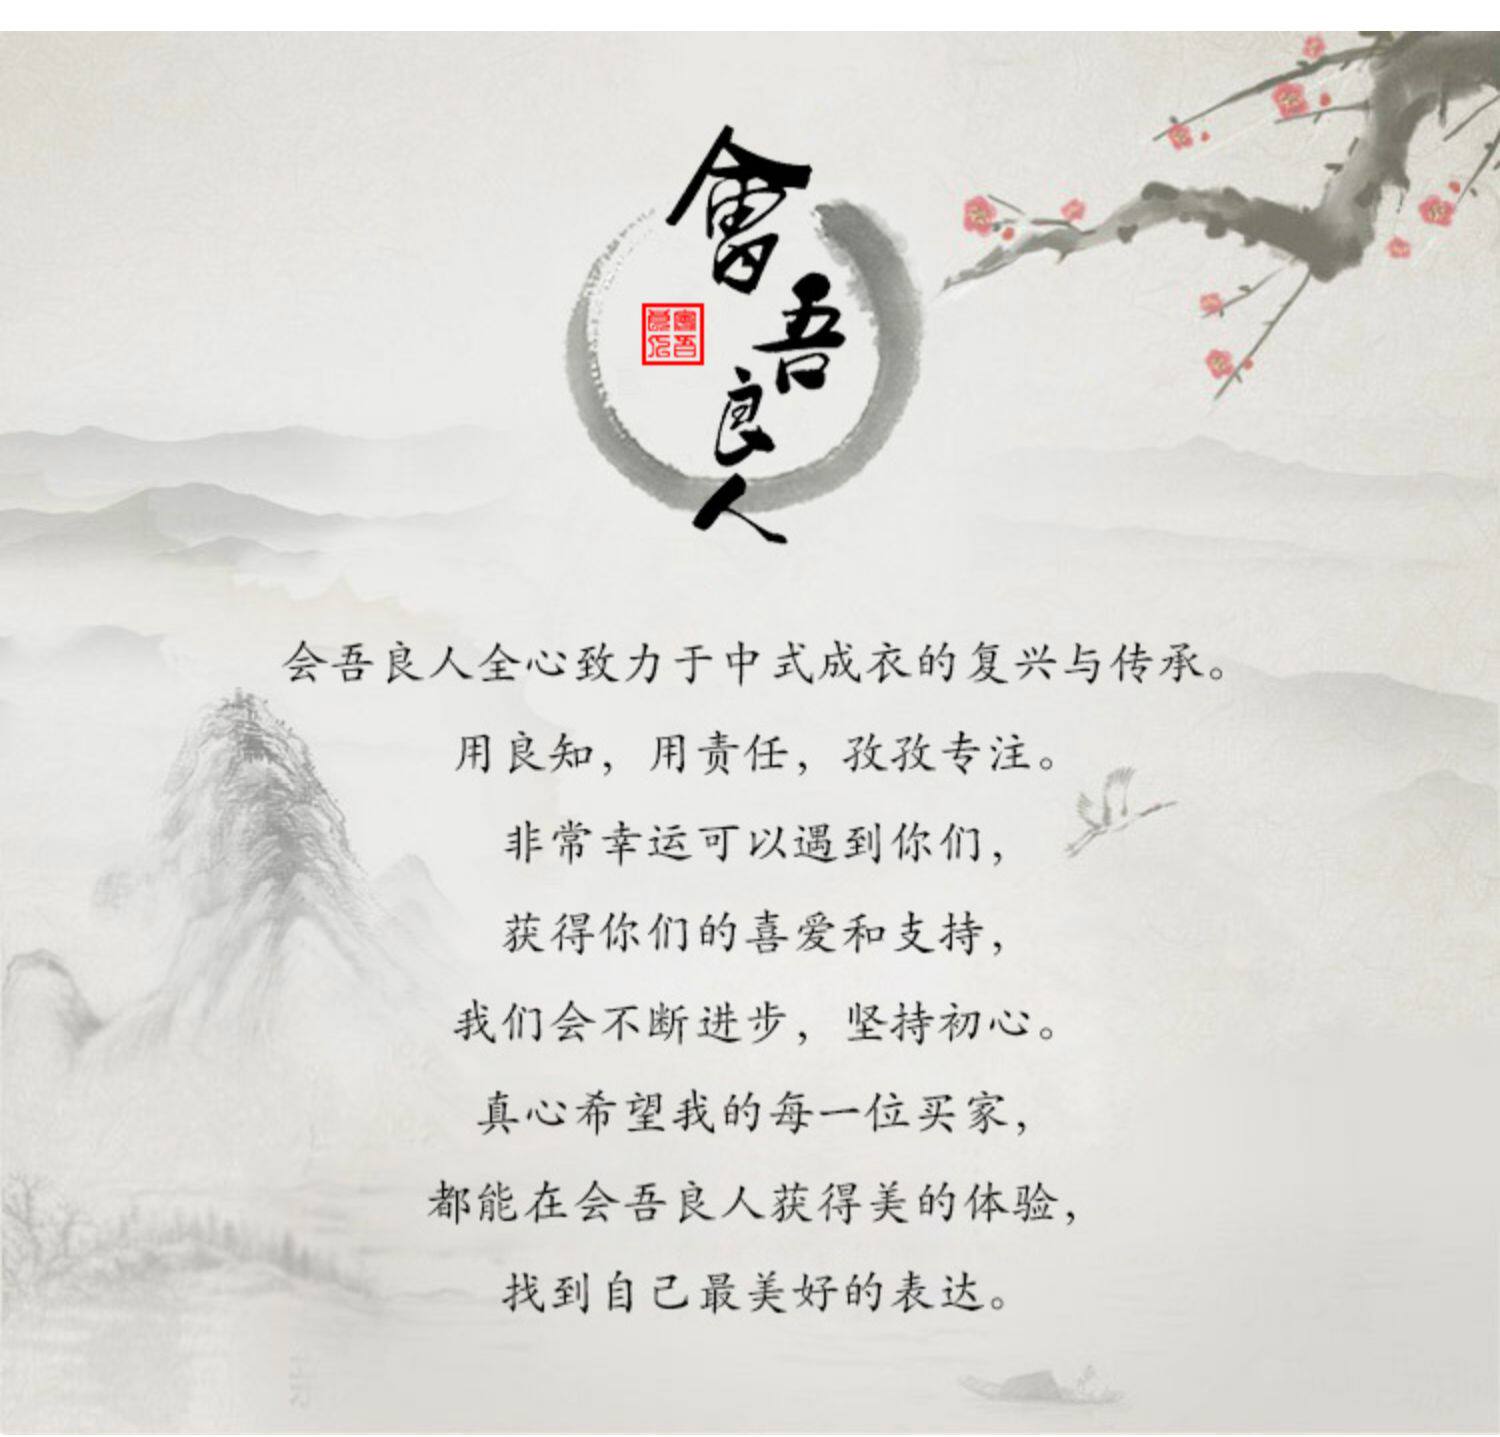 會吾良人
會吾良人
会吾良人全心致力于中式成衣的复兴与传承。
用良知，用责任，孜孜专注。
非常幸运可以遇到你们，
获得你们的喜爱和支持，
我们会不断进步，坚持初心。
真心希望我的每一位买家，
都能在会吾良人获得美的体验，
找到自己最美好的表达。